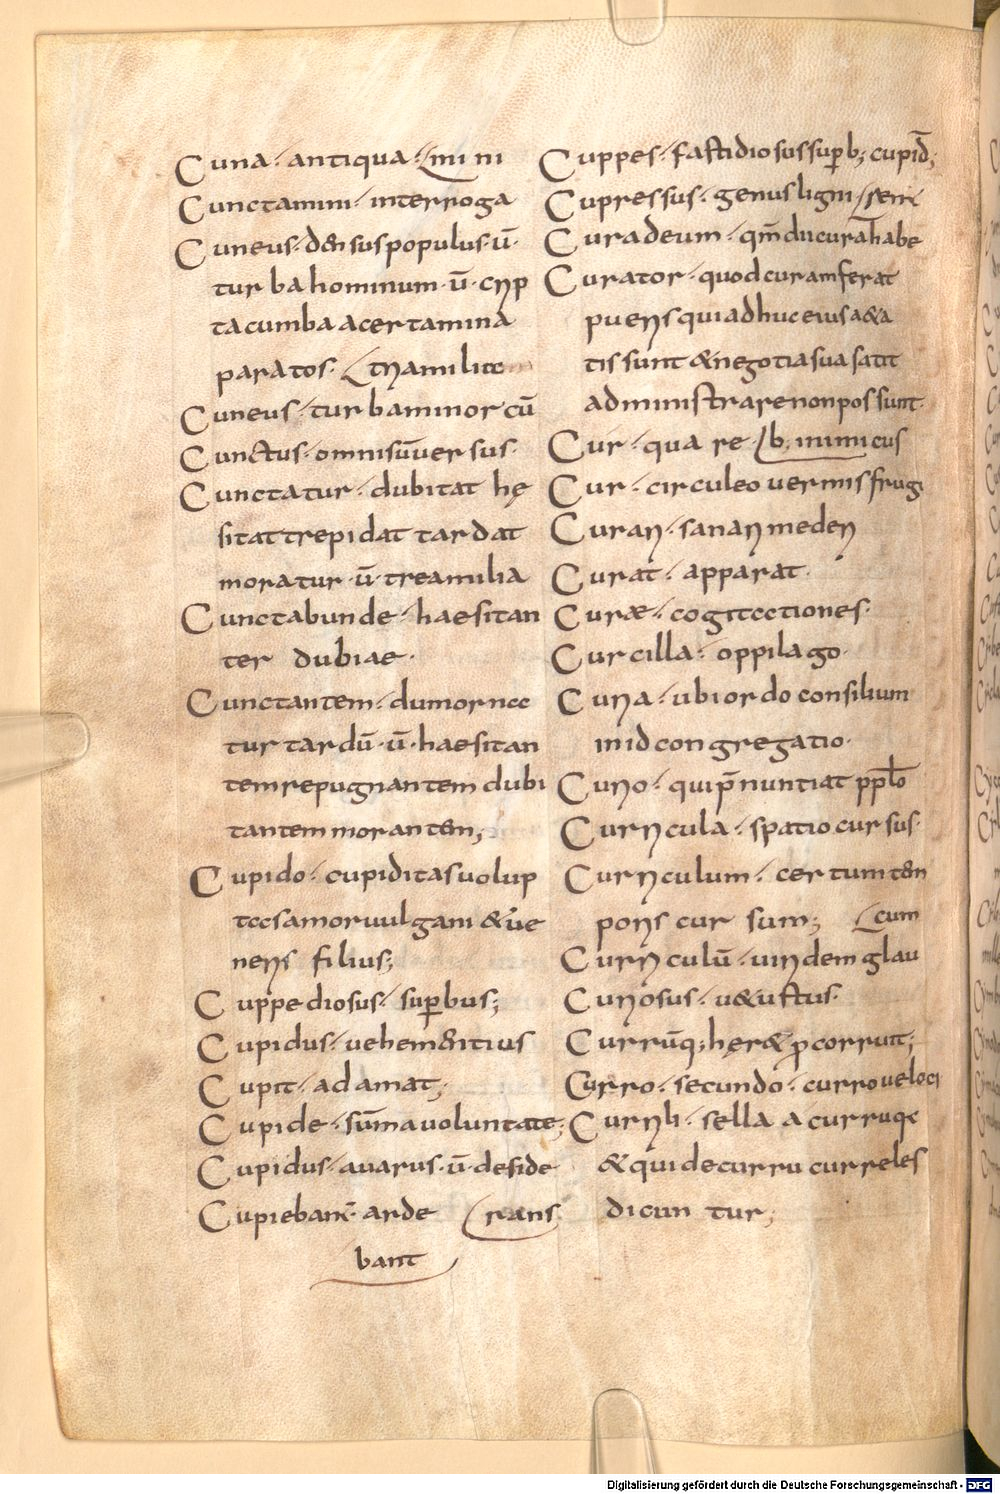 Cuna · antiqua · mini
Cunctamini · interroga
Cuneus · densus populus · ū ·
turba hominum · ū · crip
tacumba a certamina
paratos · tria milite
Cuneus · turba minor cū
Cunctus · omnis ūuersus ·
Cunctatur · dubitat hę
sitat trepidat tardat
moratur · ū · treamilia
Cunctabunde · haesitan
ter dubiae ·
Cunctantem · dumor nec
tur tardū · ū · haesitan
tem repugnantem dubi
tantem morantem;
Cupido · cupiditas uolup
tas amor uulgani & ue
neris filius;
Cuppediosus · supbus;
Cupidus · uehementius
Cupit · adamat;
Cupide · sūma uoluntate;
Cupidus · auarus · ū · deside
Cupiebant · arde rans
bant
Cuppes · fastidiosus supb; cupid;
Cupressus · genus ligni
Curadeum · qm̄ dī curā habe
Curator · quod curam ferat
pueris qui adhuc eius a&a
tis sunt & negotia sua satit
administrare non possunt ·
Cur · qua re b; inimicus
Cur · circuleo uermis frugi
Curari · sanari mederi
Curat · apparat ·
Curæ · cogitationes ·
Curcilla · oppilago ·
Curia · ubi ordo consilium
inid congregatio ·
Curio · qui p̄nuntiat pplo
Curricula · spatio cursus ·
Curriculum · certum tem
poris cursum; cum
Curriculū · uiridem glau
Curiosus · u&ustus ·
Currūq; heræ p corruit;
Curro · secundo · curro ueloci
sella a curruqe
& qui de curru curreles
dicuntur;
Digitalisierung gefördert durch die Deutsche Forschungsgemeinschaft - DFG